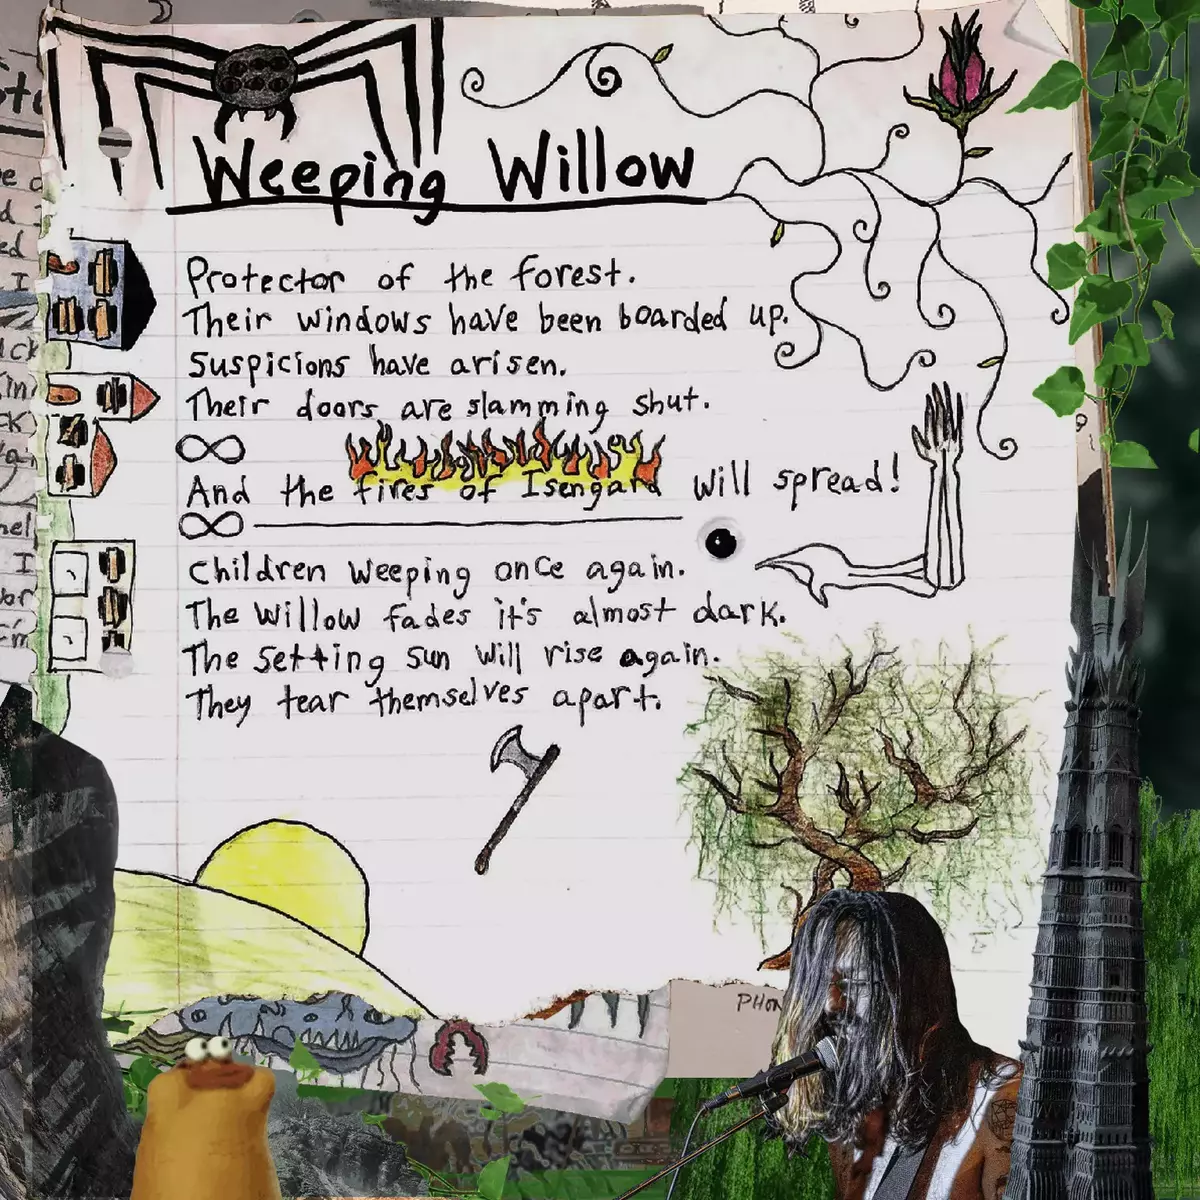 Weeping Willow
Protector of the forest.
Their windows have been boarded up.
Suspicions have arisen.
Their doors are slamming shut.
∞
And the fires of Isengard will spread!
∞
Children weeping once again.
The Willow fades it's almost dark.
The setting sun will rise again.
They tear themselves apart.